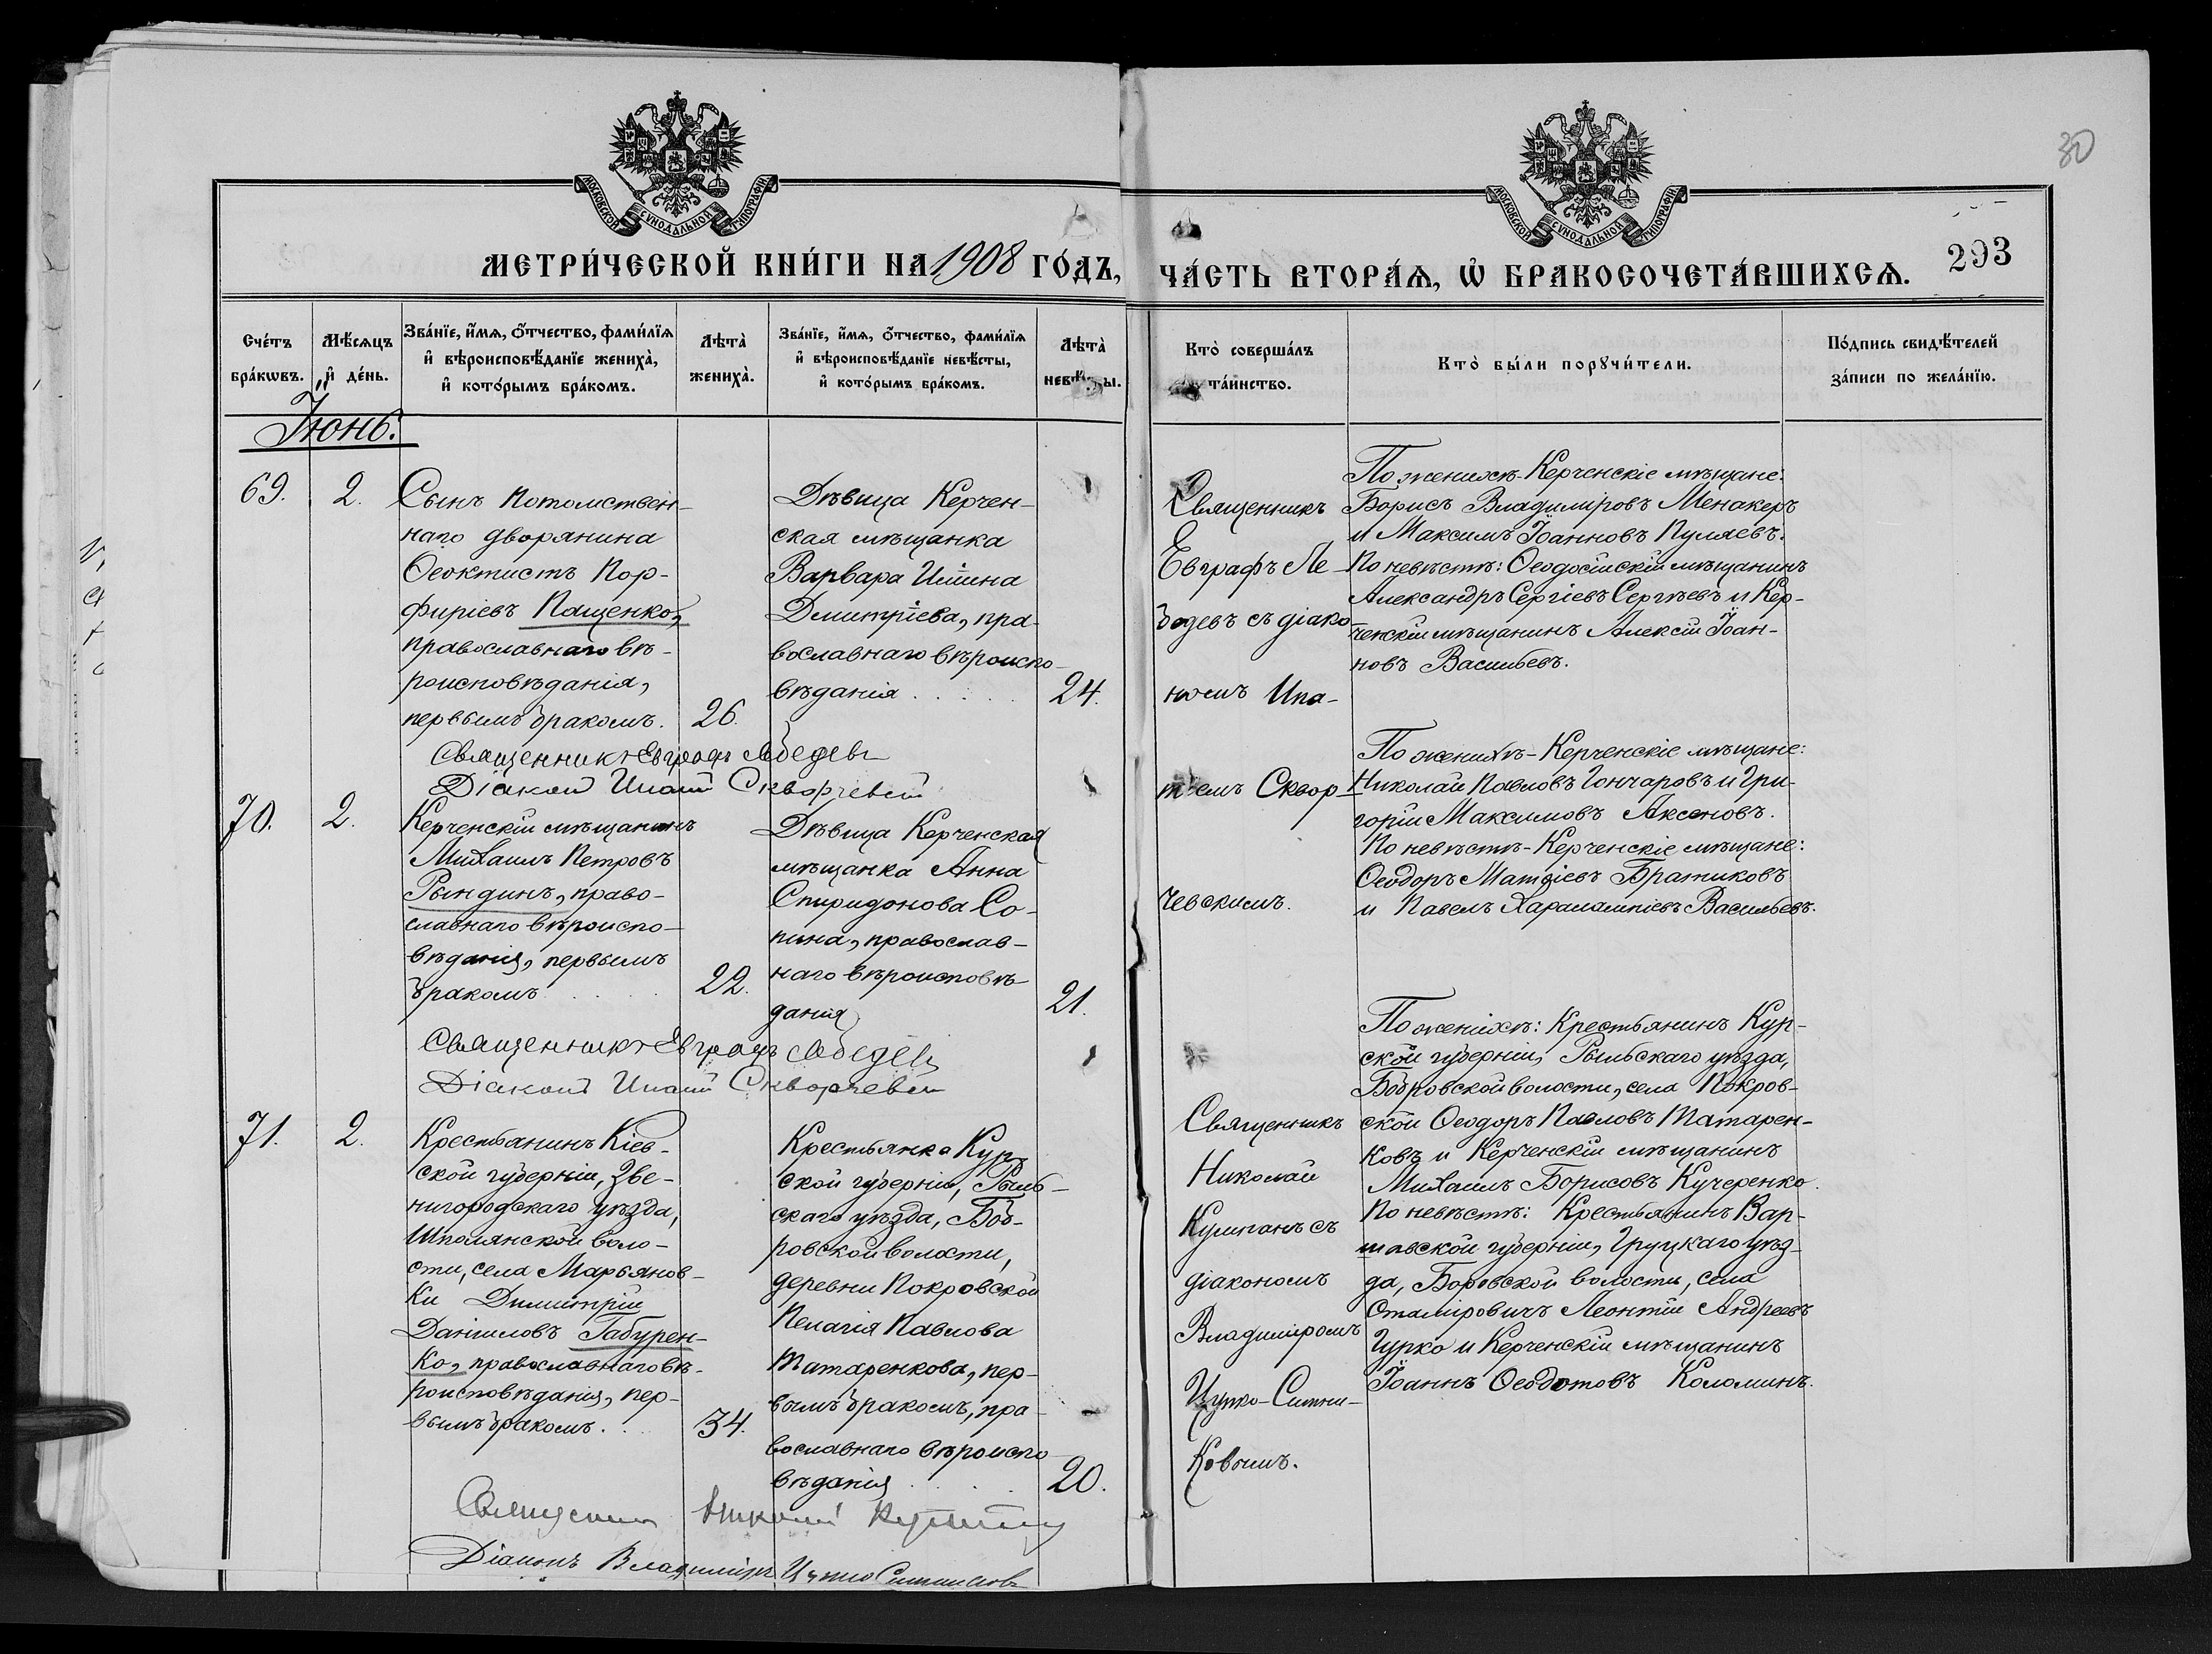 30
МОСКОВСКОЙ СѴНОДАЛЬНОЙ ТИПОГРАФІИ
МОСКОВСКОЙ СѴНОДАЛЬНОЙ ТИПОГРАФІИ
МЕТРИ́ЧЕСКОЙ КНИ́ГИ НА 1908 ГО́ДЪ,
ЧА́СТЬ ВТОРА́Ѧ, Ѽ БРАКОСОЧЕТА́ВШИХСѦ.
293
Сче́тъ
бра́кѡвъ.
Мѣ́сяцъ
и҆ де́нь.
Зва́нїе, и҆́мя, о҆́тчество, фами́лїя
и҆ вѣроисповѣ́данїе жениха̀,
и҆ кото́рымъ бра́комъ.
Лѣта̀
жениха̀.
Зва́нїе, и҆́мя, о҆́тчество, фами́лїя
и҆ вѣроисповѣ́данїе невѣ́сты,
и҆ кото́рымъ бра́комъ.
Лѣта̀
невѣ́сты.
Кто̀ соверша́лъ
та́инство.
Кто̀ бы́ли порꙋчи́тели.
По́дпись свидѣ́телей
за́писи по жела́нїю.
Іюнь.
69.
2.
Сынъ потомствен-
наго дворянина
Ѳеоктистъ Пор-
фиріевъ Пащенко,
православнаго вѣ-
роисповѣданія,
первымъ бракомъ.
26.
Дѣвица Керчен-
ская мѣщанка
Варвара Ишина
Дмитріева, пра-
вославнаго вѣроиспо-
вѣданія . . . .
24.
Священникъ
Евграфъ Ле-
бедевъ съ діако-
номъ Ипа-
тіемъ Сквор-
чевскимъ.
По женихѣ - Керченскіе мѣщане:
Борисъ Владиміровъ Менакеръ
и Максимъ Іоанновъ Пуляевъ.
По невѣстѣ: Ѳеодосійскій мѣщанинъ
Александръ Сергіевъ Сергѣевъ и Кер-
ченскій мѣщанинъ Алексій Іоан-
новъ Васильевъ.
Священникъ Евграфъ Лебедевъ
Діаконъ Ипатій Скворчевскій
70.
2.
Керченскій мѣщанинъ
Михаилъ Петровъ
Рындинъ, право-
славнаго вѣроиспо-
вѣданія, первымъ
бракомъ . . . .
22.
Дѣвица Керченская
мѣщанка Анна
Спиридонова Со-
пина, православ-
наго вѣроисповѣ-
данія
21.
По женихѣ - Керченскіе мѣщане:
Николай Павловъ Гончаровъ и Гри-
горій Максимовъ Аксеновъ.
По невѣстѣ - Керченскіе мѣщане:
Ѳеодоръ Матѳіевъ Братиковъ
и Павелъ Харалампіевъ Васильевъ.
Священникъ Евграфъ Лебедевъ
Діаконъ Ипатій Скворчевскій
71.
2.
Крестьянинъ Кіев-
ской губерніи, Зве-
нигородскаго уѣзда,
Шполянской воло-
сти, села Марьянов-
ки Димитрій
Даніиловъ Габурен-
ко, православнаго вѣ-
роисповѣданія, пер-
вымъ бракомъ. . .
34.
Крестьянка Кур-
ской губерніи, Рыль-
скаго уѣзда, Боб-
ровской волости,
деревни Покровской
Пелагія Павлова
Татаренкова, пер-
вымъ бракомъ, пра-
вославнаго вѣроиспо-
вѣданія . . . .
20.
Священникъ
Николай
Кулпанъ съ
діакономъ
Владиміромъ
Цупко-Ситни-
ковымъ.
По женихѣ: Крестьянинъ Кур-
ской губерніи, Рыльскаго уѣзда,
Бобровской волости, села Покров-
ской Ѳеодоръ Павловъ Татарен-
ковъ и Керченскій мѣщанинъ
Михаилъ Борисовъ Кучеренко.
По невѣстѣ: Крестьянинъ Вар-
шавской губерніи, Груцкаго уѣз-
да, Боровской волости, села
Стамировичъ Леонтій Андреевъ
Гурко и Керченскій мѣщанинъ
Іоаннъ Ѳеодотовъ Коломинъ.
Священникъ Николай
Діаконъ Владиміръ Цупко Ситниковъ